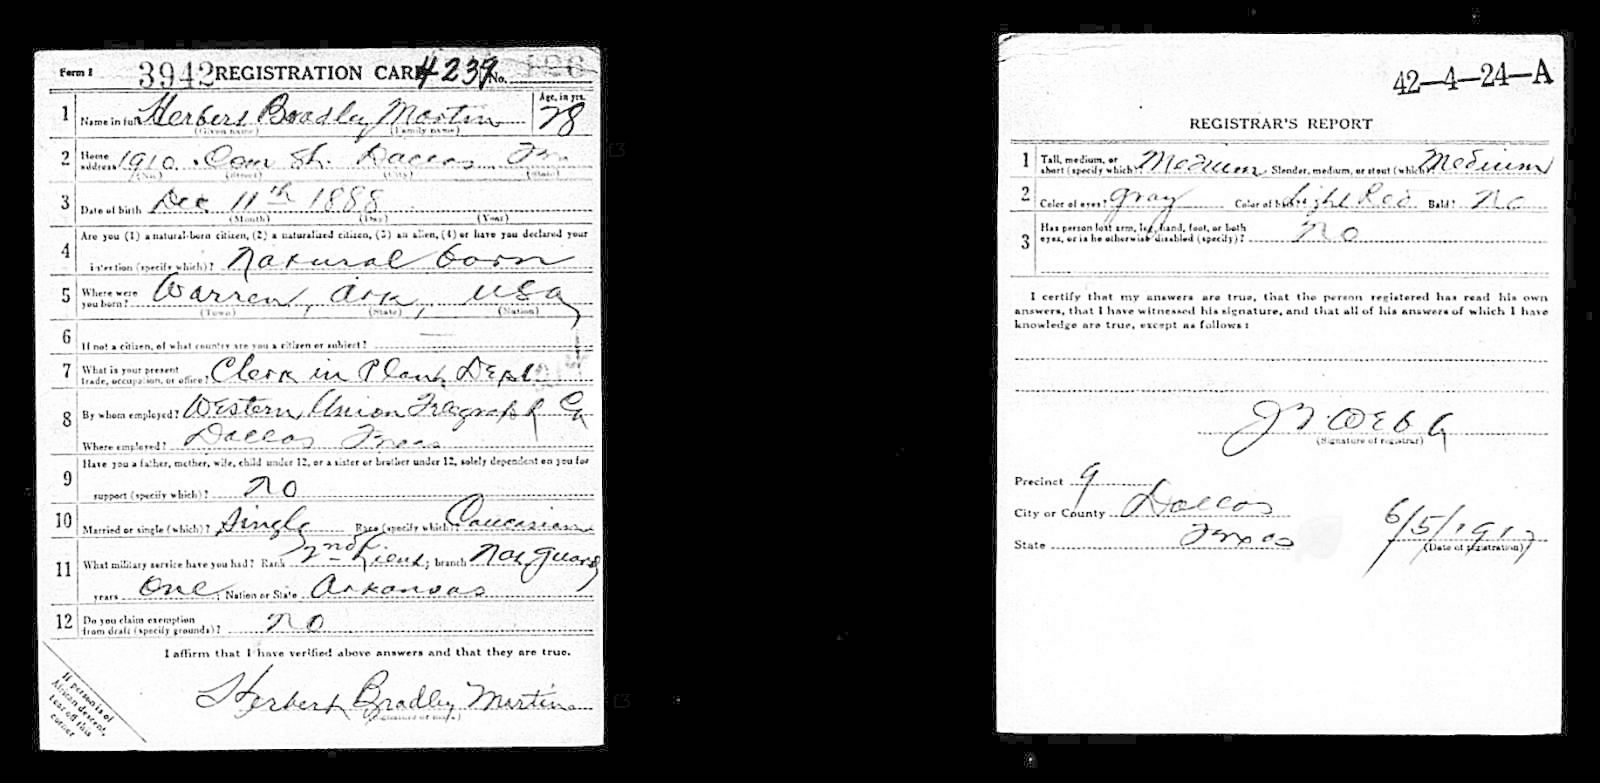 Form 1 3942 REGISTRATION CARD 4239 No. 126
1 Name in full Herbert Bradley Martin Age, in yrs. 28
(Given name) (Family name)
2 Home address 1910 St. Dallas Tex
(No.) (Street) (City) (State)
3 Date of birth Dec 11th 1888
(Month) (Day) (Year)
4 Are you (1) a natural-born citizen, (2) a naturalized citizen, (3) an alien, (4) or have you declared your
intention (specify which)? Natural born
5 Where were you born? Warren, Ark, USA
(Town) (State) (Nation)
6 If not a citizen, of what country are you a citizen or subject? —
7 What is your present trade, occupation, or office? Clerk in Plant Dept.
8 By whom employed? Western Union Telegraph Co
Where employed? Dallas Texas
9 Have you a father, mother, wife, child under 12, or a sister or brother under 12, solely dependent on you for
support (specify which)? No
10 Married or single (which)? Single Race (specify which)? Caucasian
11 What military service have you had? Rank 2nd Lieut; branch Nat guard
years one; Nation or State Arkansas
12 Do you claim exemption from draft (specify grounds)? No
I affirm that I have verified above answers and that they are true.
Herbert Bradley Martin
(Signature or mark)
If person is of
African descent,
tear off this
corner
42-4-24-A
REGISTRAR'S REPORT
1 Tall, medium, or short (specify which)? Medium Slender, medium, or stout (which)? Medium
2 Color of eyes? Gray Color of hair? Light Red Bald? No
3 Has person lost arm, leg, hand, foot, or both eyes, or is he otherwise disabled (specify)? No
I certify that my answers are true, that the person registered has read his own
answers, that I have witnessed his signature, and that all of his answers of which I have
knowledge are true, except as follows:
(Signature of registrar)
Precinct 9
City or County Dallas
State Texas 6/5/1917
(Date of registration)